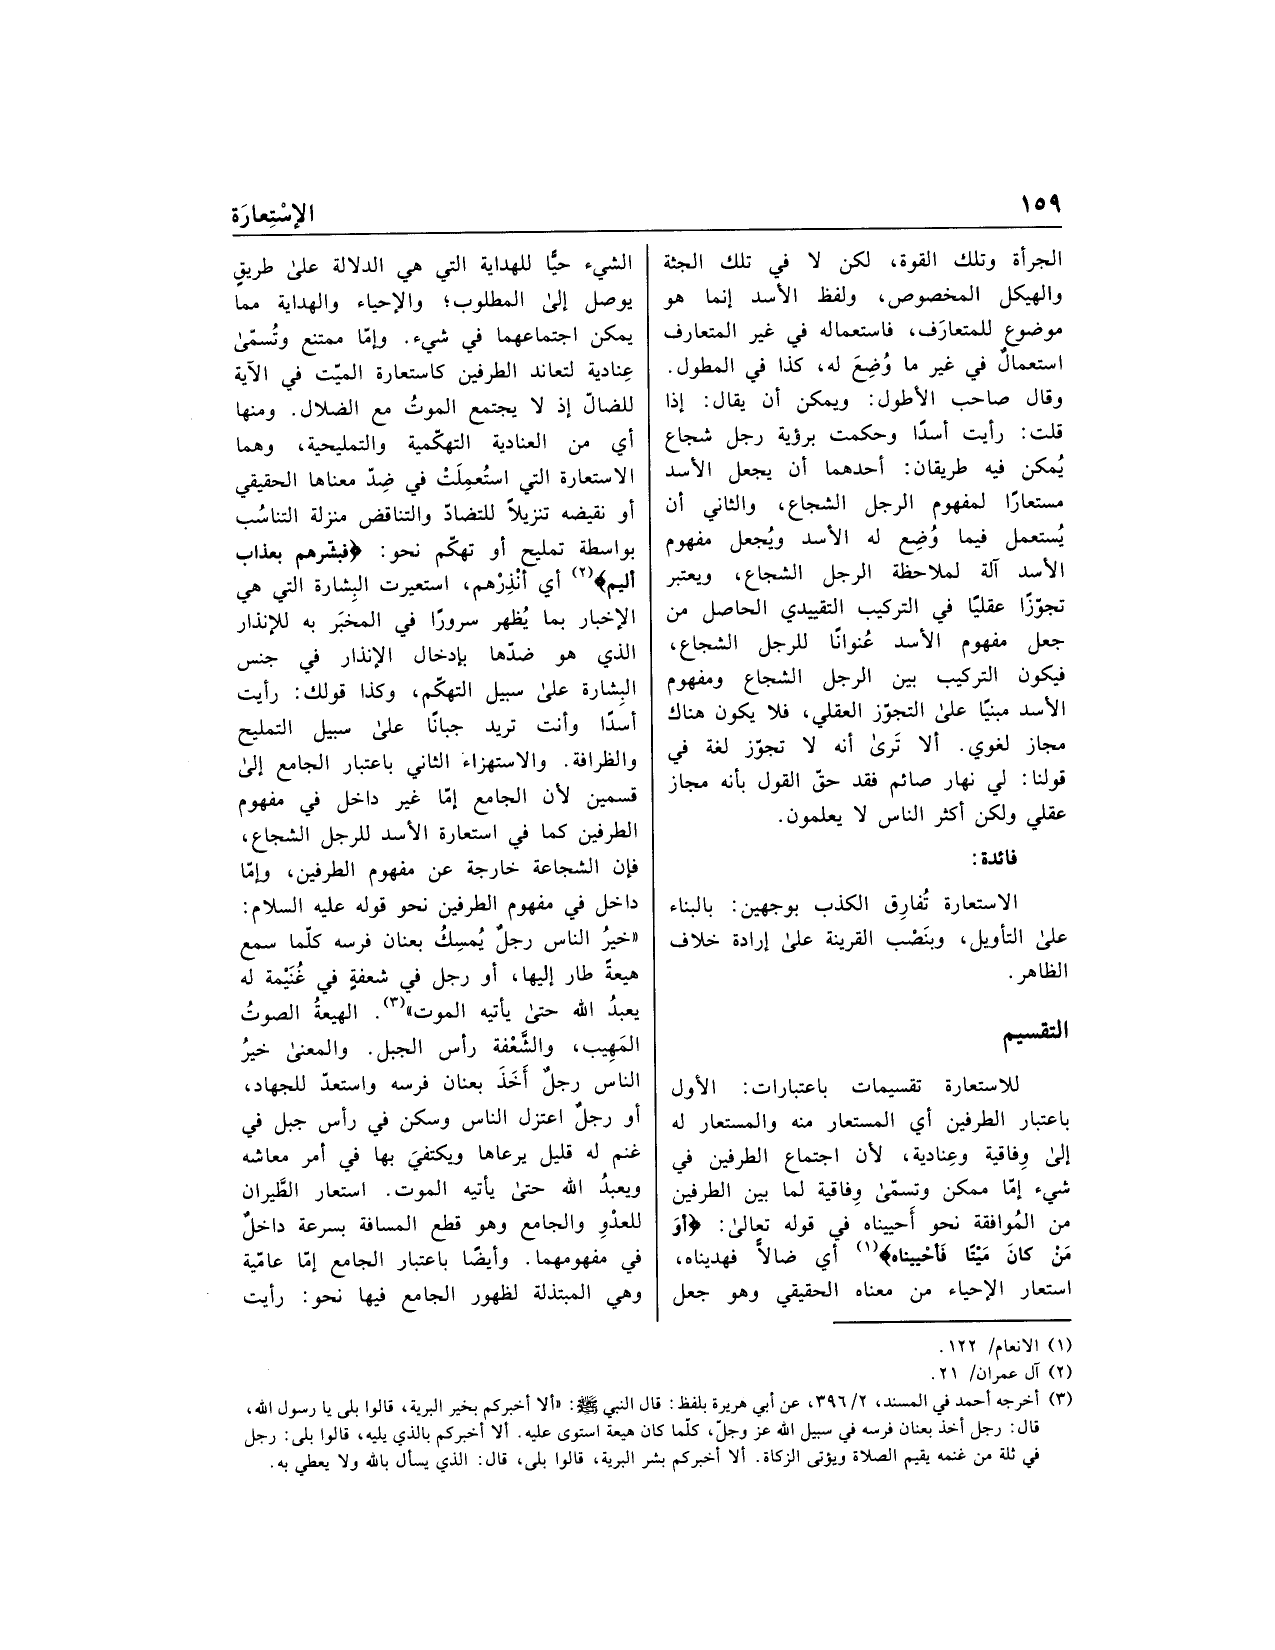 ١٥٩
الإسْتِعارَة
الجرأة وتلك القوة، لكن لا في تلك الجثة
والهيكل المخصوص، ولفظ الأسد إنما هو
موضوع للمتعارَف، فاستعماله في غير المتعارف
استعمالٌ في غير ما وُضِعَ له، كذا في المطول.
وقال صاحب الأطول: ويمكن أن يقال: إذا
قلت: رأيت أسدًا وحكمت برؤية رجل شجاع
يُمكن فيه طريقان: أحدهما أن يجعل الأسد
مستعارًا لمفهوم الرجل الشجاع، والثاني أن
يُستعمل فيما وُضِع له الأسد ويُجعل مفهوم
الأسد آلة لملاحظة الرجل الشجاع، ويعتبر
تجوّزًا عقليًا في التركيب التقييدي الحاصل من
جعل مفهوم الأسد عُنوانًا للرجل الشجاع،
فيكون التركيب بين الرجل الشجاع ومفهوم
الأسد مبنيًا علىٰ التجوّز العقلي، فلا يكون هناك
مجاز لغوي. ألا تَرىٰ أنه لا تجوّز لغة في
قولنا: لي نهار صائم فقد حقّ القول بأنه مجاز
عقلي ولكن أكثر الناس لا يعلمون.
فائدة:
الاستعارة تُفارِق الكذب بوجهين: بالبناء
علىٰ التأويل، وبنَصْب القرينة علىٰ إرادة خلاف
الظاهر.
التقسيم
للاستعارة تقسيمات باعتبارات: الأول
باعتبار الطرفين أي المستعار منه والمستعار له
إلىٰ وِفاقية وعِنادية، لأن اجتماع الطرفين في
شيء إمّا ممكن وتسمّىٰ وِفاقية لما بين الطرفين
من المُوافقة نحو أَحييناه في قوله تعالىٰ: ﴿أوَ
مَنْ كانَ مَيْتًا فَأحْييناه﴾(١) أي ضالاًّ فهديناه،
استعار الإحياء من معناه الحقيقي وهو جعل
الشيء حيًّا للهداية التي هي الدلالة علىٰ طريقٍ
يوصل إلىٰ المطلوب؛ والإحياء والهداية مما
يمكن اجتماعهما في شيء. وإمّا ممتنع وتُسمّىٰ
عِنادية لتعاند الطرفين كاستعارة الميّت في الآية
للضالّ إذ لا يجتمع الموتُ مع الضلال. ومنها
أي من العنادية التهكّمية والتمليحية، وهما
الاستعارة التي استُعمِلَتْ في ضِدّ معناها الحقيقي
أو نقيضه تنزيلاً للتضادّ والتناقض منزلة التناسُب
بواسطة تمليح أو تهكّم نحو: ﴿فبشّرهم بعذاب
أليم﴾(٢) أي أنْذِرْهم، استعيرت البِشارة التي هي
الإخبار بما يُظهر سرورًا في المخبَر به للإنذار
الذي هو ضدّها بإدخال الإنذار في جنس
البِشارة علىٰ سبيل التهكّم، وكذا قولك: رأيت
أسدًا وأنت تريد جبانًا علىٰ سبيل التمليح
والظرافة. والاستهزاء الثاني باعتبار الجامع إلىٰ
قسمين لأن الجامع إمّا غير داخل في مفهوم
الطرفين كما في استعارة الأسد للرجل الشجاع،
فإن الشجاعة خارجة عن مفهوم الطرفين، وإمّا
داخل في مفهوم الطرفين نحو قوله عليه السلام:
«خيرُ الناس رجلٌ يُمسِكُ بعنان فرسه كلّما سمع
هيعةً طار إليها، أو رجل في شعفةٍ في غُنَيْمة له
يعبدُ الله حتىٰ يأتيه الموت»(٣). الهيعةُ الصوتُ
المَهِيب، والشَّعْفة رأس الجبل. والمعنىٰ خيرُ
الناس رجلٌ أَخَذَ بعنان فرسه واستعدّ للجهاد،
أو رجلٌ اعتزل الناس وسكن في رأس جبل في
غنم له قليل يرعاها ويكتفيَ بها في أمر معاشه
ويعبدُ الله حتىٰ يأتيه الموت. استعار الطَّيران
للعدْوِ والجامع وهو قطع المسافة بسرعة داخلٌ
في مفهومهما. وأيضًا باعتبار الجامع إمّا عامّية
وهي المبتذلة لظهور الجامع فيها نحو: رأيت
(١) الانعام/ ١٢٢.
(٢) آل عمران/ ٢١.
(٣) أخرجه أحمد في المسند، ٢/ ٣٩٦، عن أبي هريرة بلفظ: قال النبي ﷺ: «ألا أخبركم بخير البرية، قالوا بلى يا رسول الله،
قال: رجل أخذ بعنان فرسه في سبيل الله عز وجلّ، كلّما كان هيعة استوى عليه. ألا أخبركم بالذي يليه، قالوا بلى: رجل
في ثلة من غنمه يقيم الصلاة ويؤتى الزكاة. ألا أخبركم بشر البرية، قالوا بلى، قال: الذي يسأل بالله ولا يعطي به.